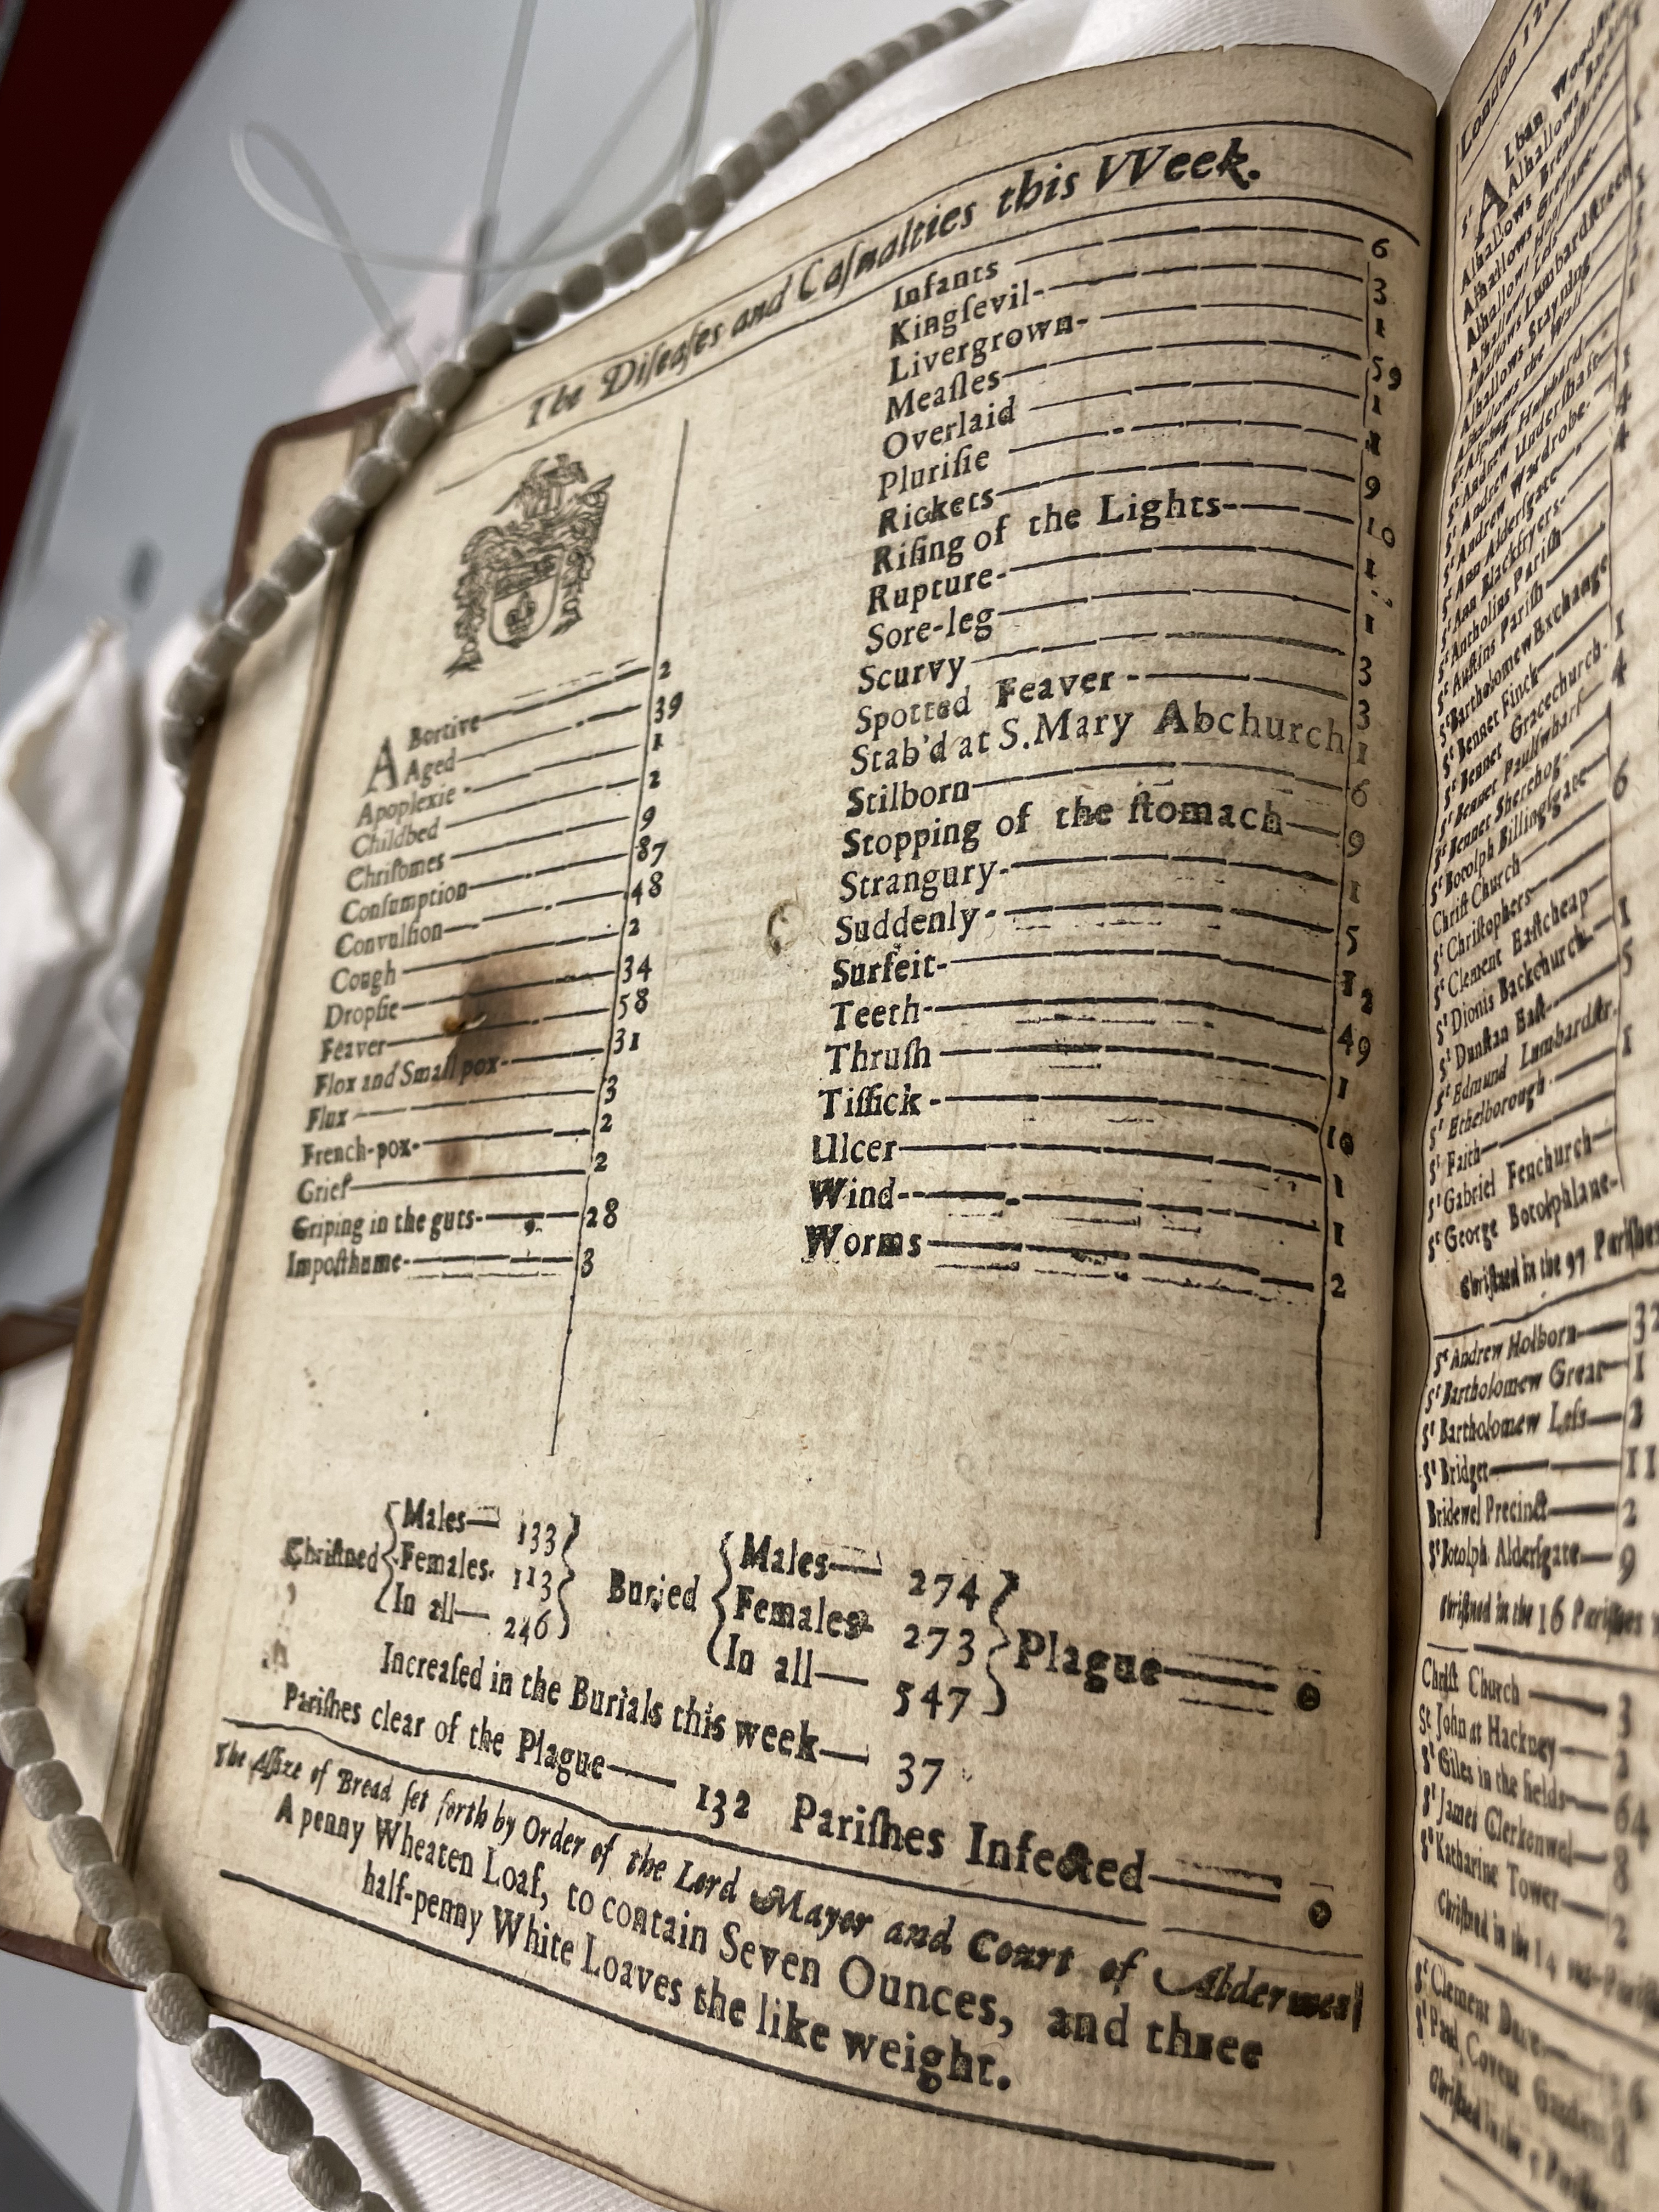 The Diſeaſes and Caſualties this VVeek.
ABortive 2
Aged 39
Apoplexie 1
Childbed 2
Chriſomes 9
Conſumption 87
Convulſion 48
Cough 2
Dropſie 34
Feaver 58
Flox and Small pox 31
Flux 3
French-pox 2
Grief 2
Griping in the guts 28
Impoſthume 3
Infants 6
Kingſevil 3
Livergrown 1
Meaſles 59
Overlaid 1
Pluriſie 1
Rickets 9
Riſing of the Lights 10
Rupture 1
Sore-leg 1
Scurvy 3
Spotted Feaver 3
Stab'd at S. Mary Abchurch 1
Stilborn 6
Stopping of the ſtomach 9
Strangury 1
Suddenly 5
Surfeit 12
Teeth 49
Thruſh 1
Tiſſick 10
Ulcer 1
Wind 1
Worms 2
Chriſtned Males 133 Females 113 In all 246
Buried Males 274 Females 273 In all 547
Plague 0
Increaſed in the Burials this week 37
Pariſhes clear of the Plague 132 Pariſhes Infected 0
The Aſſize of Bread ſet forth by Order of the Lord Mayor and Court of Aldermen
A penny Wheaten Loaf, to contain Seven Ounces, and three
half-penny White Loaves the like weight.
London
Sᵗ ALban
Alhallows
Sᵗ Ann Alderſgate
Sᵗ Ann Blackfryers
Sᵗ Antholins Pariſh
Sᵗ Auſtins Pariſh
Sᵗ Bartholomew Exchange
Sᵗ Bennet Finck 1
Sᵗ Bennet Gracechurch
Sᵗ Bennet Paulſwharf 4
Sᵗ Bennet Sherehog
Sᵗ Botolph Billingſgate
Chriſt Church 6
Sᵗ Chriſtophers
Sᵗ Clement Eaſtcheap
Sᵗ Dionis Backchurch 1
Sᵗ Dunſtan Eaſt 5
Sᵗ Edmund Lumbardſtr.
Sᵗ Ethelborough 1
Sᵗ Faith
Sᵗ Gabriel Fenchurch
Sᵗ George Botolphlane
Chriſtned in the 97 Pariſhes
Sᵗ Andrew Holborn 32
Sᵗ Bartholomew Great 1
Sᵗ Bartholomew Leſs
Sᵗ Bridget 11
Bridewel Precinct 2
Sᵗ Botolph Alderſgate 9
Chriſtned in the 16 Pariſhes
Chriſt Church 3
St John at Hackney
Sᵗ Giles in the fields 64
Sᵗ James Clerkenwel 8
Sᵗ Katharine Tower 2
Chriſtned in the 14 out-Pariſhes
Sᵗ Clement Danes
Sᵗ Paul Covent Garden
Chriſtned in the 5 Pariſhes